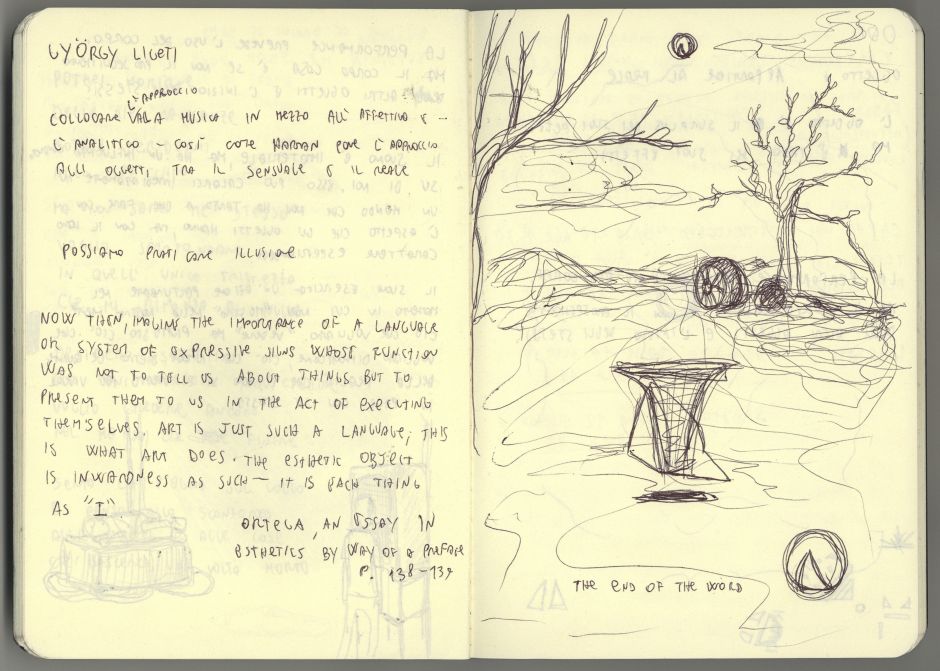 GYÖRGY LIGETI
L'APPROCCIO
COLLOCARE ALLA MUSICA IN MEZZO ALL' AFFETTIVO E
L'ANALITICO – COSÌ COME HARMAN PONE L'APPROCCIO
AGLI OGGETTI TRA IL SENSUALE E IL REALE
POSSIAMO PRATICARE ILLUSIONE
NOW THEN, IMAGINE THE IMPORTANCE OF A LANGUAGE
OR SYSTEM OF EXPRESSIVE SIGNS WHOSE FUNCTION
WAS NOT TO TELL US ABOUT THINGS BUT TO
PRESENT THEM TO US IN THE ACT OF EXECUTING
THEMSELVES. ART IS JUST SUCH A LANGUAGE; THIS
IS WHAT ART DOES. THE ESTHETIC OBJECT
IS INWARDNESS AS SUCH – IT IS EACH THING
AS "I".
ORTEGA, AN ESSAY IN
ESTHETICS BY WAY OF A PREFACE
P. 138–139
THE END OF THE WORD